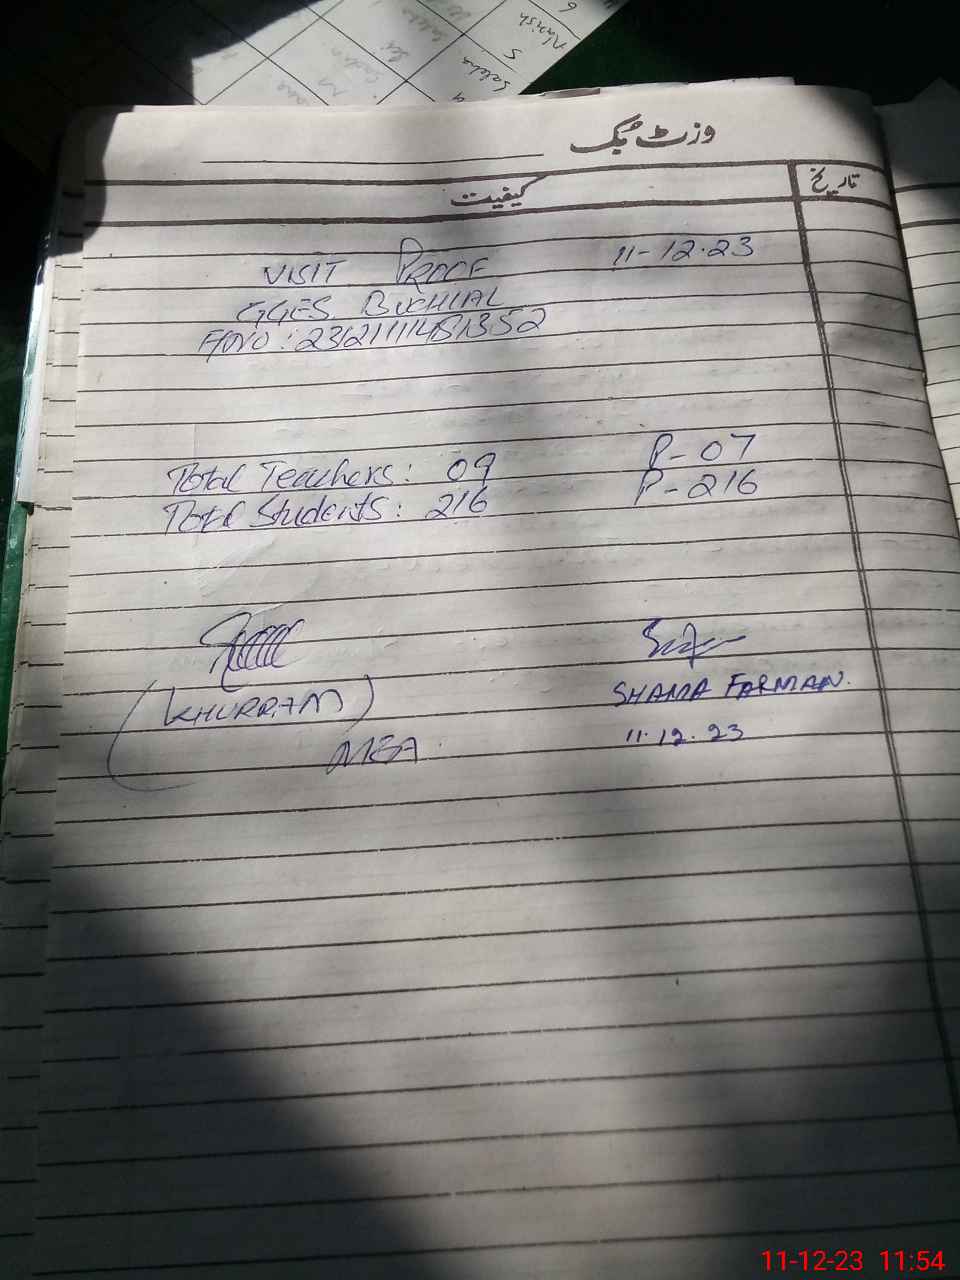 6
Narish
5
Saleha
4
وزٹ بک
کیفیت
تاریخ
VISIT PROOF 11-12-23
GGES BUCHIAL
Total Teachers: 09 P-07
Total Students: 216 P-216
(KHURRAM) SHAMA FARMAN.
MEA 11.12.23
11-12-23 11:54